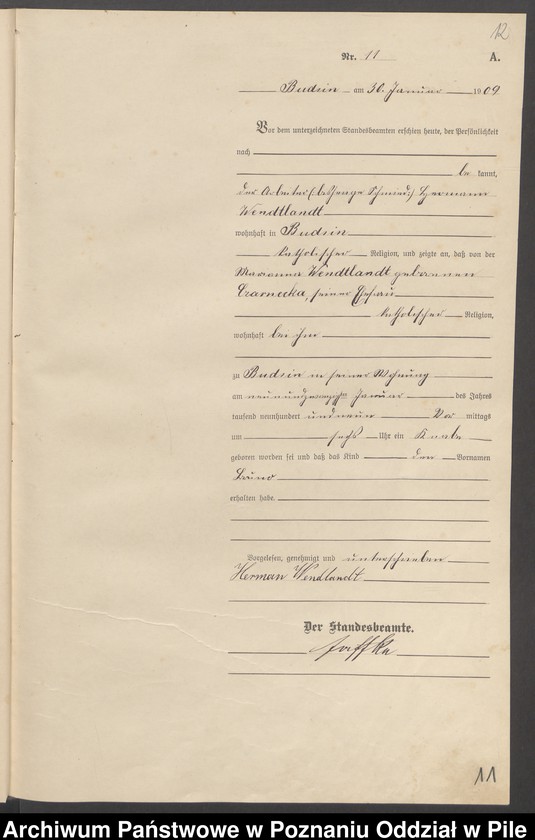 12
Nr. 11 A.
Budsin am 30. Januar 1909
Vor dem unterzeichneten Standesbeamten erschien heute, der Persönlichkeit
nach
be kannt,
der Arbeiter Schmied Hermann
Wendtlandt
wohnhaft in Budsin
katholischer Religion, und zeigte an, daß von der
Marianna Wendtlandt geborenen
Czarnecka, seiner Ehefrau
katholischer Religion,
wohnhaft bei ihm
zu Budsin in seiner Wohnung
am neunundzwanzigsten Januar des Jahres
tausend neunhundert und neun Vor mittags
um sechs Uhr ein Knabe
geboren worden sei und daß das Kind den Vornamen
Bruno
erhalten habe.
Vorgelesen, genehmigt und unterschrieben
Herman Wendlandt
Der Standesbeamte.
Jaffke
11
Archiwum Państwowe w Poznaniu Oddział w Pile